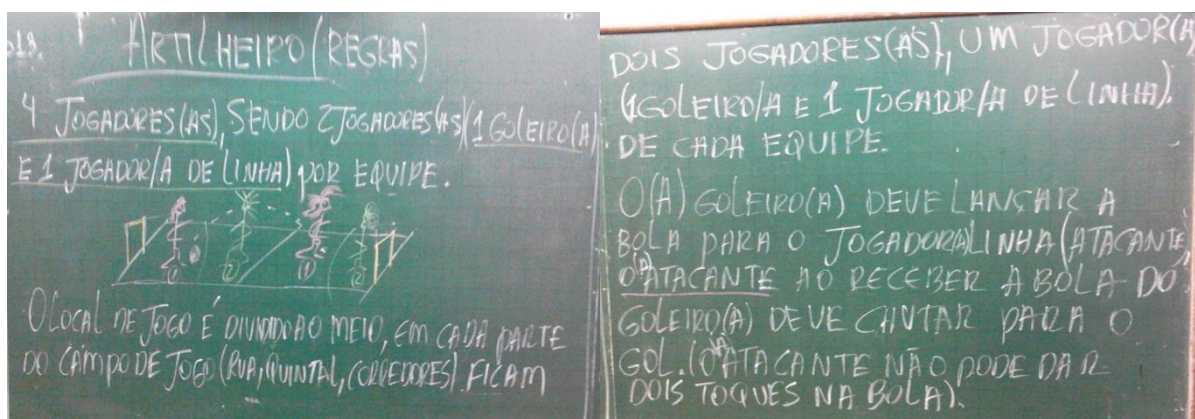 ARTILHEIRO (REGRAS)
4 JOGADORES(AS), SENDO 2 JOGADORES(AS) (1 GOLEIRO(A)
E 1 JOGADOR/A DE LINHA) POR EQUIPE.
1 2 1 2
O LOCAL DE JOGO É DIVIDIDO AO MEIO, EM CADA PARTE
DO CAMPO DE JOGO (RUA, QUINTAL, CORREDORES) FICAM
DOIS JOGADORES(AS), UM JOGADOR(A)
(1 GOLEIRO/A E 1 JOGADOR/A DE LINHA).
DE CADA EQUIPE.
O(A) GOLEIRO(A) DEVE LANÇAR A
BOLA PARA O JOGADOR(A) LINHA (ATACANTE),
O(A) ATACANTE AO RECEBER A BOLA DO
GOLEIRO(A) DEVE CHUTAR PARA O
GOL. (O(A) ATACANTE NÃO PODE DAR
DOIS TOQUES NA BOLA).